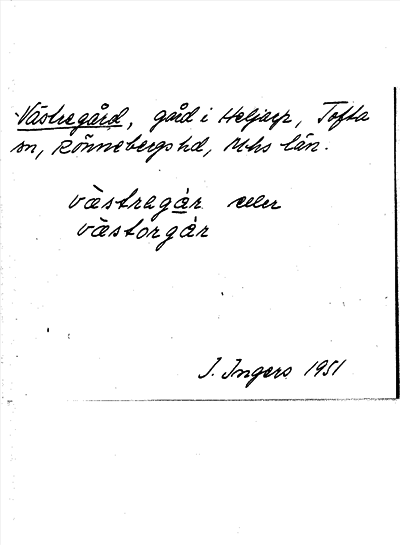 Västregård, gård i Heljarp, Tofta
sn, Rönnebergs hd, Mhs län.
västragår eller
västorgår
I. Ingers 1951